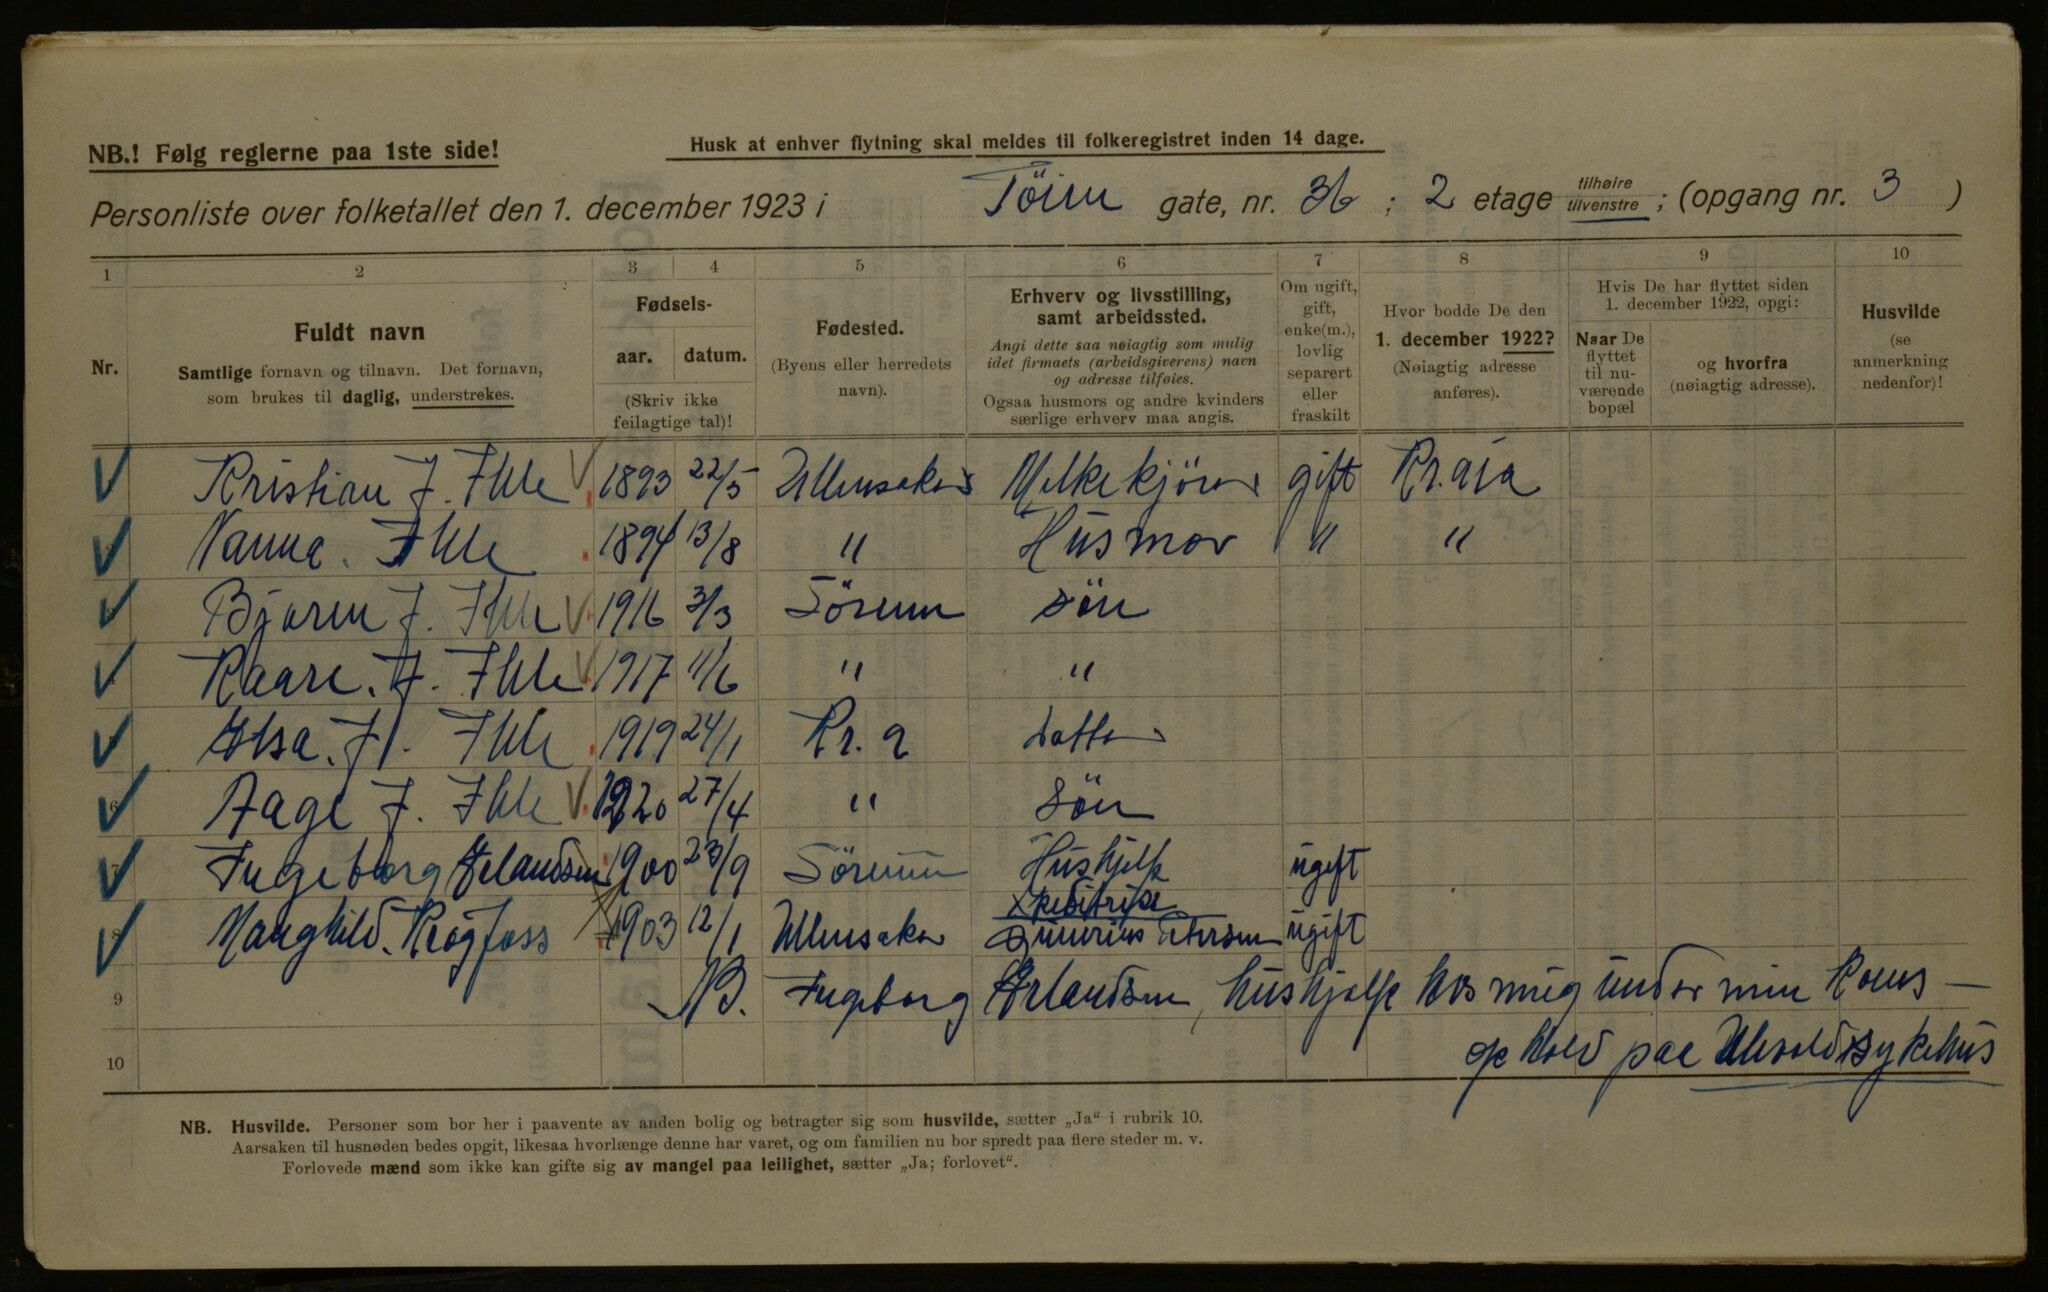 NB.! Følg reglerne paa 1ste side!
Husk at enhver flytning skal meldes til folkeregistret inden 14 dage.
Personliste over folketallet den 1. december 1923 i Töien gate, nr. 36 ; 2 etage tilhøire tilvenstre ; (opgang nr. 3 )
1 2 3 4 5 6 7 8 9 10
Nr.
Fuldt navn
Samtlige fornavn og tilnavn. Det fornavn,
som brukes til daglig, understrekes.
Fødsels-
aar. datum.
(Skriv ikke
feilagtige tal)!
Fødested.
(Byens eller herredets
navn).
Erhverv og livsstilling,
samt arbeidssted.
Angi dette saa nøiagtig som mulig
idet firmaets (arbeidsgiverens) navn
og adresse tilføies.
Ogsaa husmors og andre kvinders
særlige erhverv maa angis.
Om ugift,
gift,
enke(m.),
lovlig
separert
eller
fraskilt
Hvor bodde De den
1. december 1922?
(Nøiagtig adresse
anføres).
Hvis De har flyttet siden
1. december 1922, opgi:
Naar De
flyttet
til nu-
værende
bopæl
og hvorfra
(nøiagtig adresse).
Husvilde
(se
anmerkning
nedenfor)!
Kristian J. Ihle 1893 22/5 Ullensaker Melkekjörer gift Kr.aia
Nanna. Ihle 1894 13/8 " Husmor " "
Bjarne J. Ihle 1916 3/3 Sörum sön
Kaare. J. Ihle 1917 11/6 " "
Elsa. J. Ihle 1919 24/1 Kr. a datter
6 Aage J. Ihle 1920 27/4 " sön
7 Ingeborg Erlandsen 1900 23/9 Sörum Hushjelp ugift
8 Krogfoss 1903 12/1 Ullensaker Ekspeditrise Petersen ugift
9 NB. Ingeborg Erlandsen, hushjelp hos mig under min Kones —
10 ophold paa Ullevold sykehus
NB. Husvilde. Personer som bor her i paavente av anden bolig og betragter sig som husvilde, sætter „Ja“ i rubrik 10.
Aarsaken til husnøden bedes opgit, likesaa hvorlænge denne har varet, og om familien nu bor spredt paa flere steder m. v.
Forlovede mænd som ikke kan gifte sig av mangel paa leilighet, sætter „Ja; forlovet“.